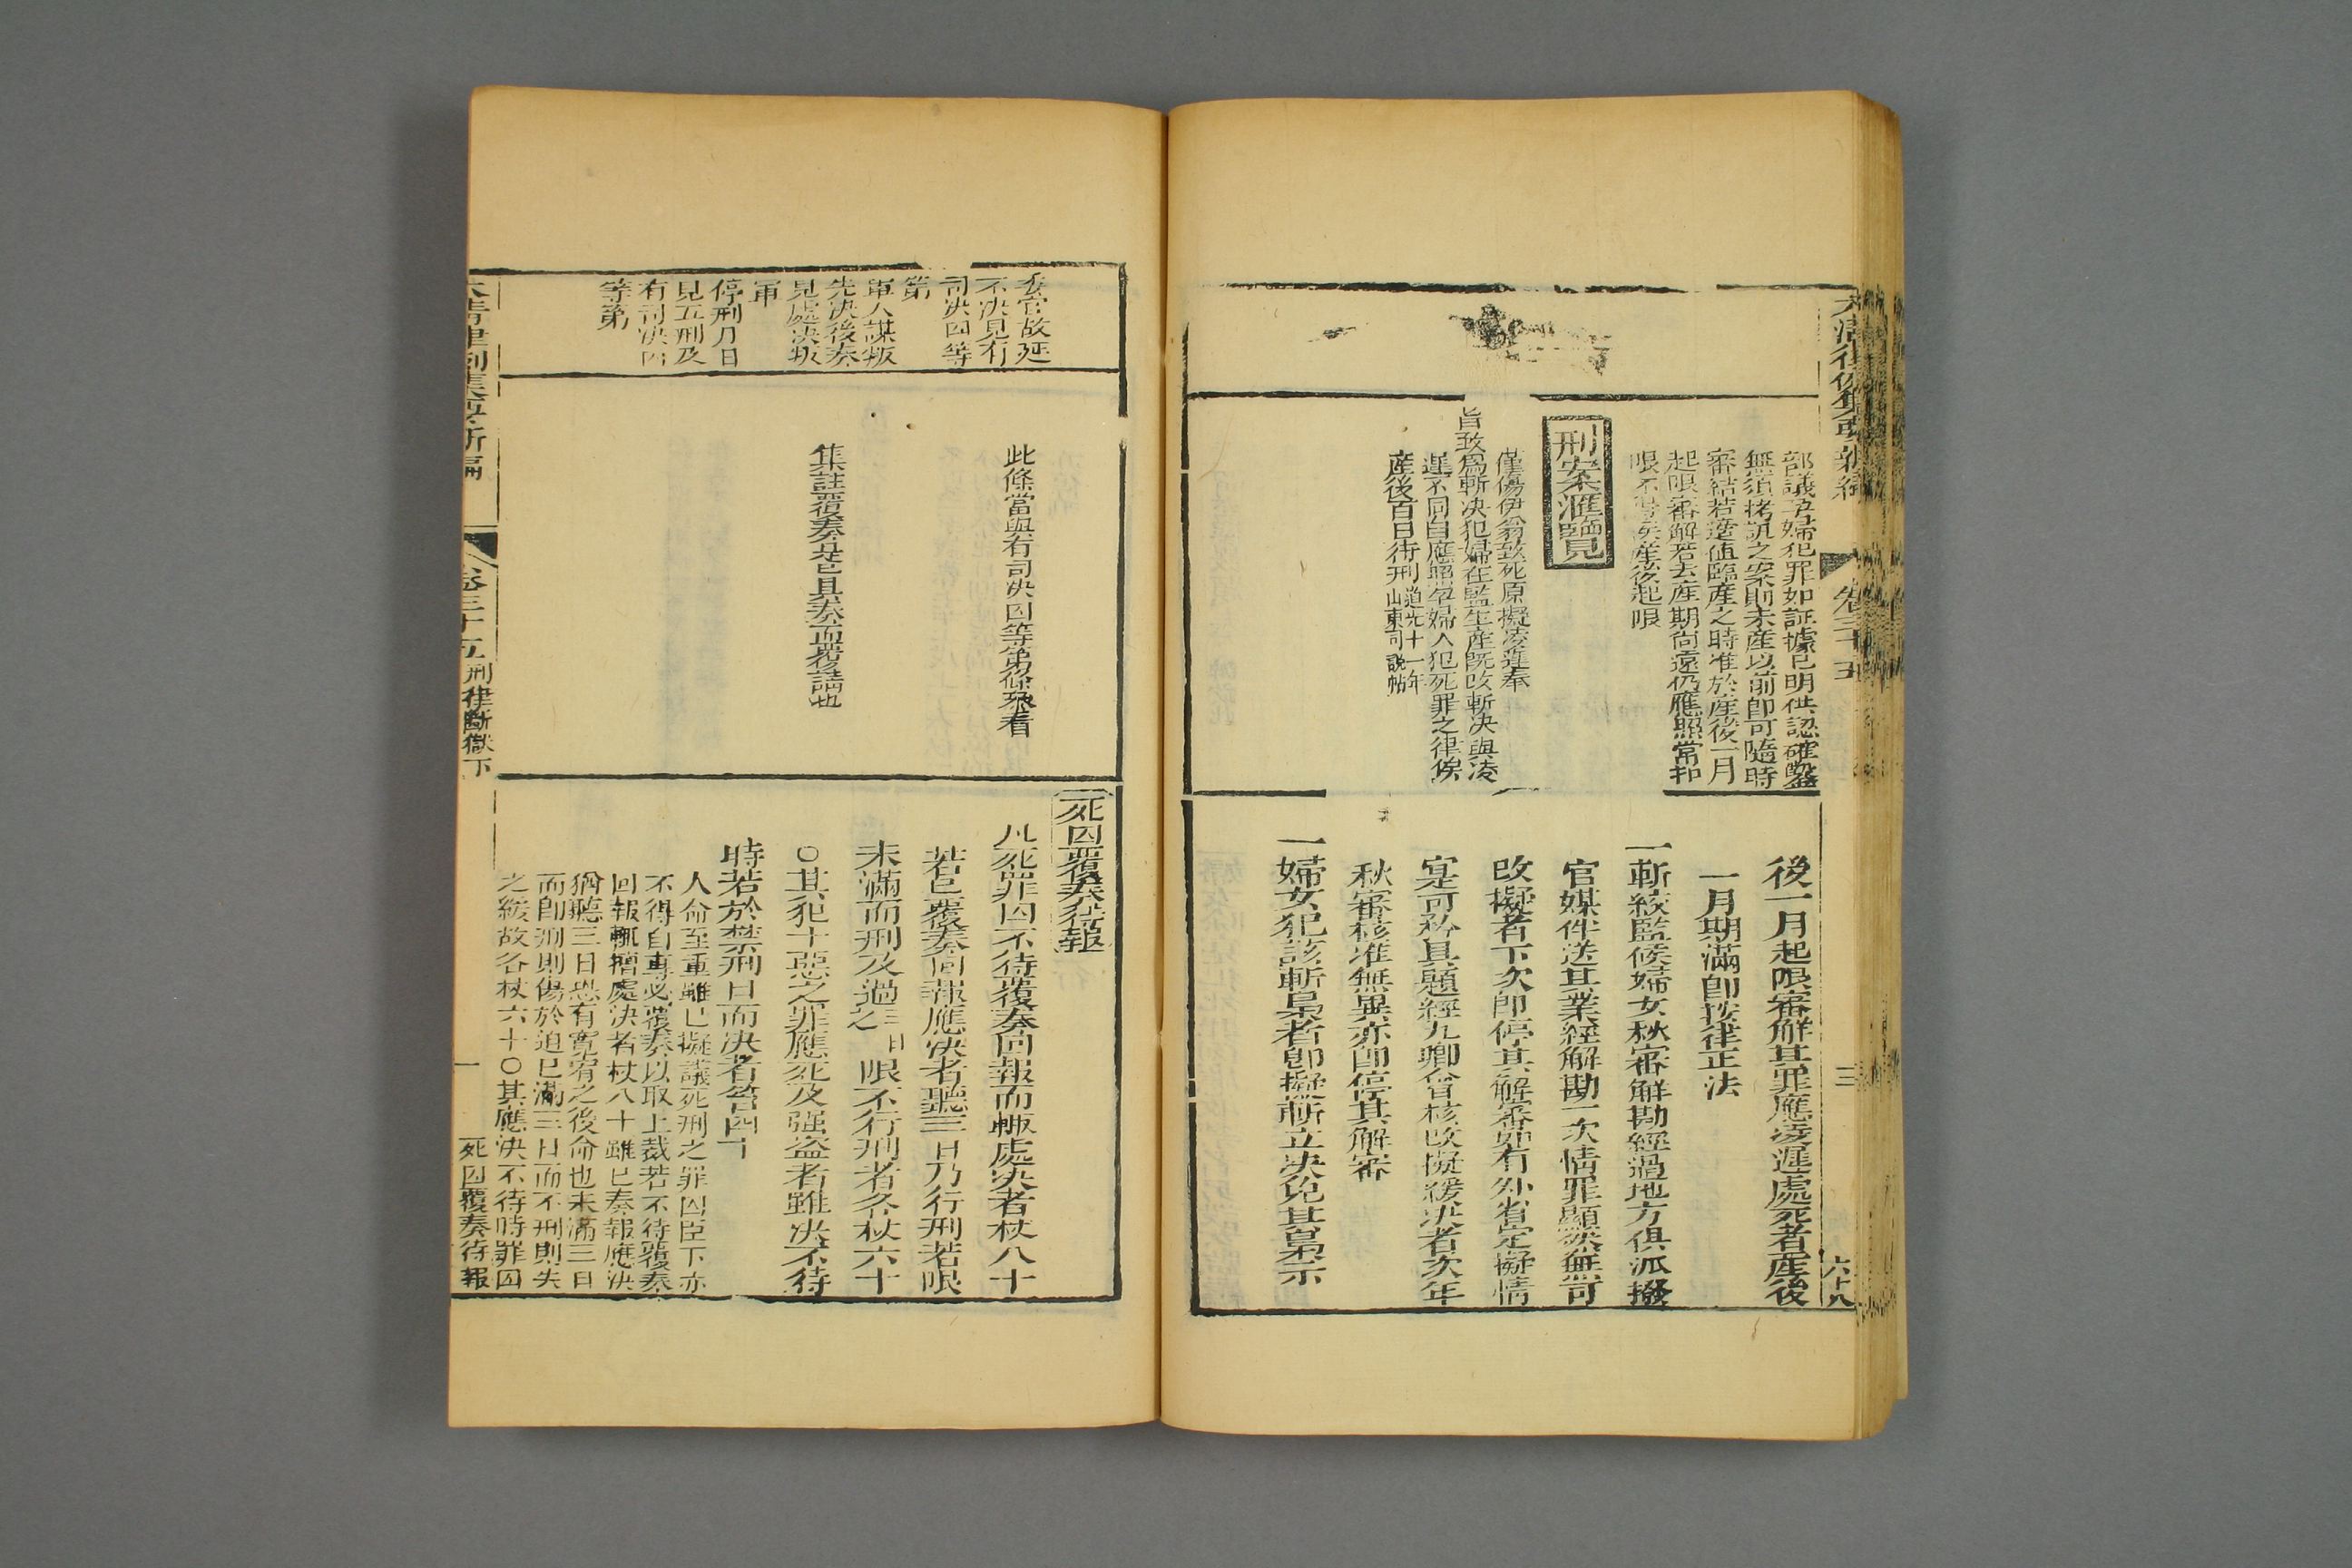 大清律例集要新編
卷三十五
三
六十八
部議孕婦犯罪如証據已明供認確鑿
無須拷訊之案則未産以前卽可隨時
審結若遽值臨産之時准於産後一月
起限審解若去産期尚遠仍應照常扣
限不得於産後起限
刑案滙覽
僅傷伊翁致死原擬凌遲奉
旨改爲斬决犯婦在監生産旣改斬决與凌
遲不同自應照孕婦人犯死罪之律俟
産後百日行刑道光十一年山東司說帖
後一月起限審解其罪應凌遲處死者産後
一月期滿卽按律正法
一斬絞監候婦女秋審解勘經過地方俱派撥
官媒伴送其業經解勘一次情罪顯然無可
改擬者下次卽停其解審如有外省定擬情
寔可矜具題經九卿會核改擬緩决者次年
秋審核准無異亦卽停其解審
一婦女犯該斬梟者卽擬斬立决免其梟示
委官故延
不决見有
司决囚等
第
軍人謀叛
先决後奏
見處决叛
軍
停刑月日
見五刑及
有司决囚
等第
此條當與有司决囚等第條叅看
集註覆奏是已具奏而覆請也
死囚覆奏待報
凡死罪囚不待覆奏回報而輒處决者杖八十
若已覆奏回報應决者聽三日乃行刑若限
未滿而刑及過三日之限不行刑者各杖六十
○其犯十惡之罪應死及强盗者雖决不待
時若於禁刑日而决者笞四十
人命至重雖已擬議死刑之罪囚臣下亦
不得自專必覆奏以取上裁若不待覆奏
回報輒擅處决者杖八十雖已奏報應决
猶聽三日恐有寬宥之後命也未滿三日
而卽刑則傷於迫已滿三日而不刑則失
之緩故各杖六十○其應决不待時罪囚
大清律例集要新編
卷三十五
刑律斷獄下
一
死囚覆奏待報